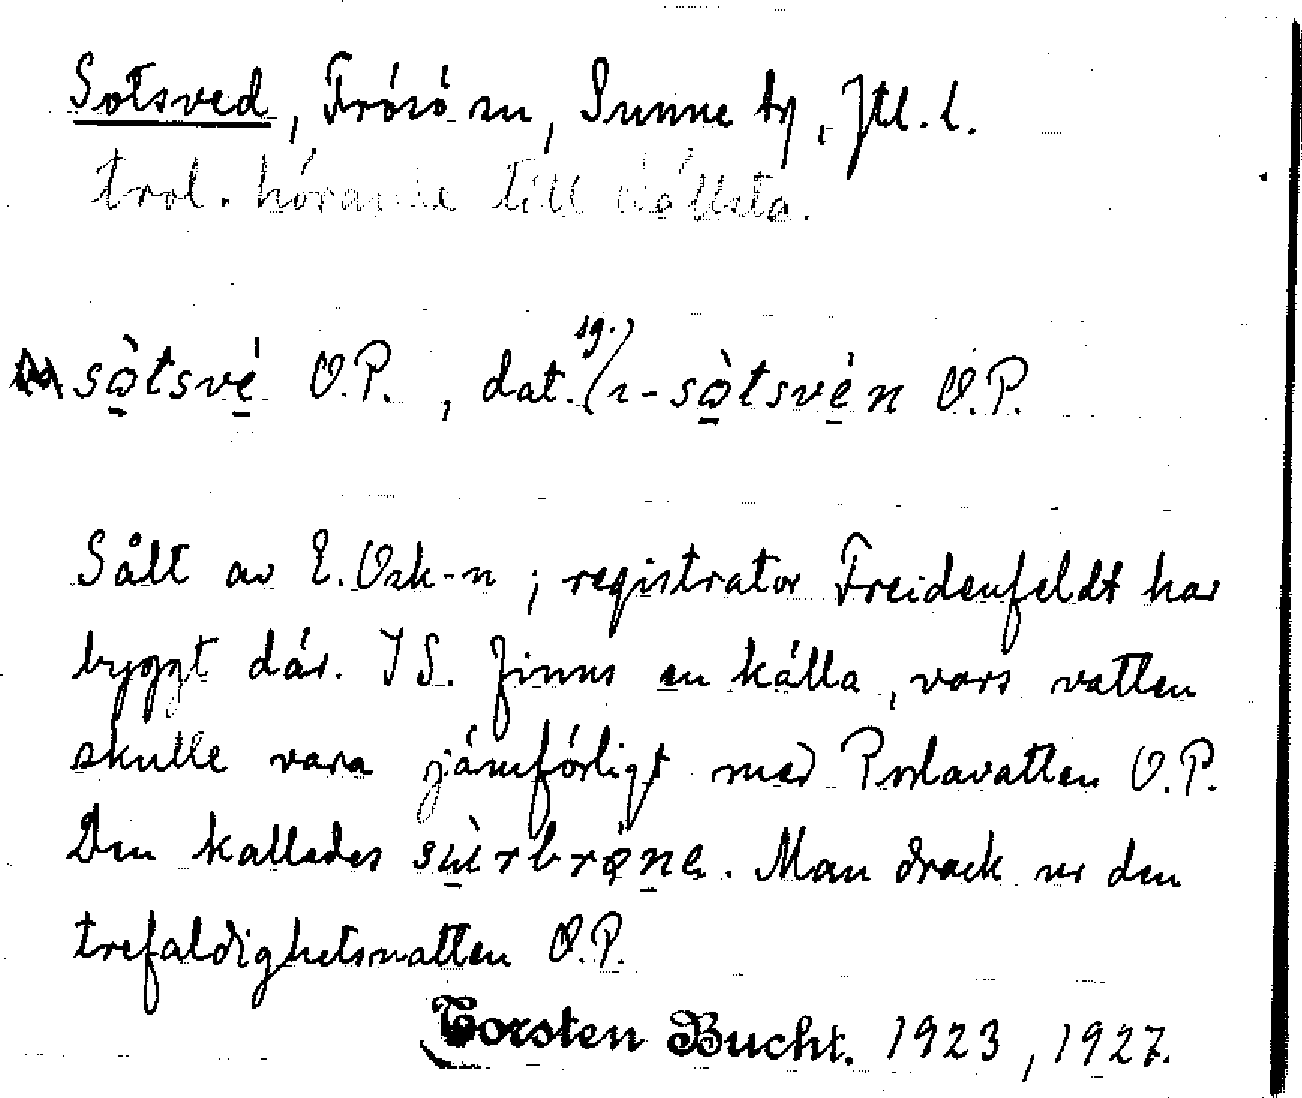 Sotsved, Frösö sn, Sunne tg, Jtl. l.
trol. hörande till Hällsta.
sòtsvé O.P., dat. sg. /ı-sòtsvén O.P.
Sålt av E. Osk-n; registrator Freidenfeldt har
byggt där. I S. finns en källa, vars vatten
skulle vara jämförligt med Porlavatten O.P.
Den kallades sùrbrøna. Man drack ur den
trefaldighetsnatten O.P.
Torsten Bucht. 1923, 1927.